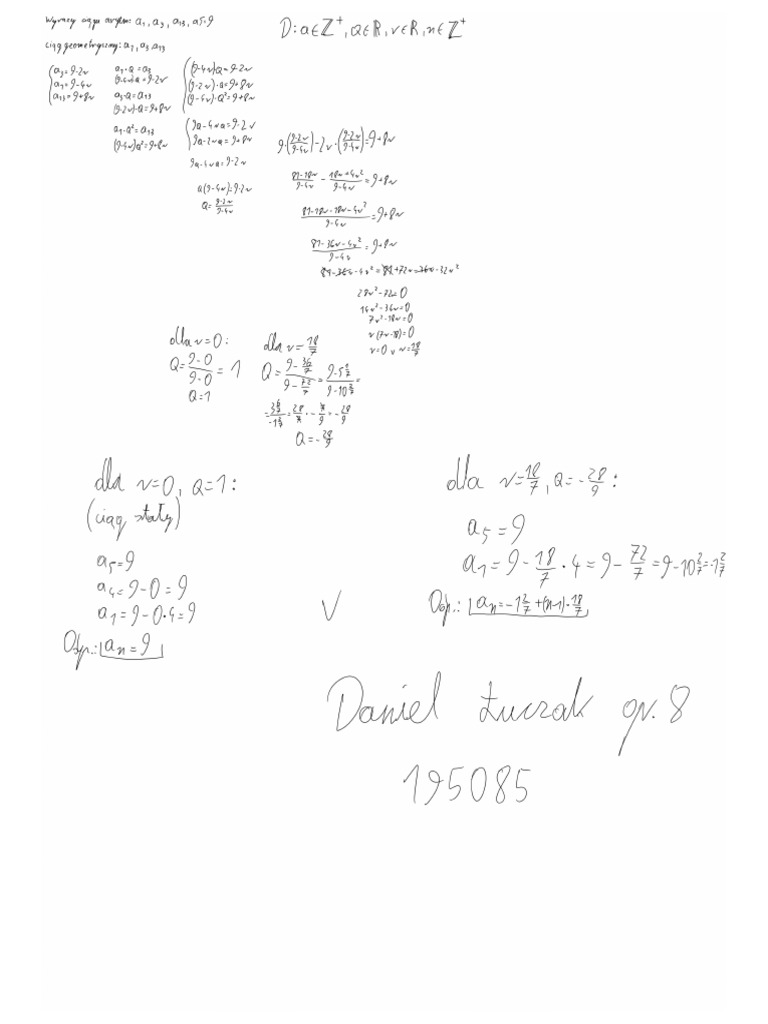 Wyrazy ciągu arytm: a₁, a₃, a₁₃, a5=9
D: a∈ℤ⁺, Q∈ℝ, r∈ℝ, n∈ℤ⁺
ciąg geometryczny: a₁, a₃, a₁₃
a₃=9-2r
a₁=9-4r
a₁₃=9+8r
a₁·Q=a₃
(9-4r)Q=9-2r
a₃·Q=a₁₃
(9-2r)·Q=9+8r
a₁·Q²=a₁₃
(9-4r)Q²=9+8r
(9-4r)Q=9-2r
(9-2r)·Q=9+8r
(9-4r)·Q²=9+8r
9Q-4rQ=9-2r
9Q-2rQ=9+8r
9Q-4rQ=9-2r
Q(9-4r)=9-2r
Q=\frac{9-2r}{9-4r}
9·(\frac{9-2r}{9-4r})-2r·(\frac{9-2r}{9-4r})=9+8r
\frac{81-18r}{9-4r} - \frac{18r+4r²}{9-4r}=9+8r
\frac{81-18r-18r-4r²}{9-4r}=9+8r
\frac{81-36r-4r²}{9-4r}=9+8r
81-36r-4r²=81+72r-36r-32r²
28r²-72=0
14r²-36r=0
7r²-18r=0
r(7r-18)=0
r=0 ∨ r=\frac{18}{7}
dla r=0:
Q=\frac{9-0}{9-0}=1
Q=1
dla r=\frac{18}{7}
Q=\frac{9-\frac{36}{7}}{9-\frac{72}{7}}=\frac{9-5\frac{1}{7}}{9-10\frac{2}{7}}=
=\frac{3\frac{6}{7}}{-1\frac{2}{7}}=\frac{28}{7}·-\frac{7}{9}=-\frac{28}{9}
Q=-\frac{28}{9}
dla r=0, Q=1:
(ciąg stały)
a₅=9
a₄=9-0=9
a₁=9-0·4=9
Odp.: aₙ=9
V
dla r=\frac{18}{7}, Q=-\frac{28}{9}:
a₅=9
a₁=9-\frac{18}{7}·4=9-\frac{72}{7}=9-10\frac{2}{7}=-1\frac{2}{7}
Odp.: aₙ=-1\frac{2}{7}+(n-1)·\frac{18}{7}
Daniel Łuczak gr. 8
195085